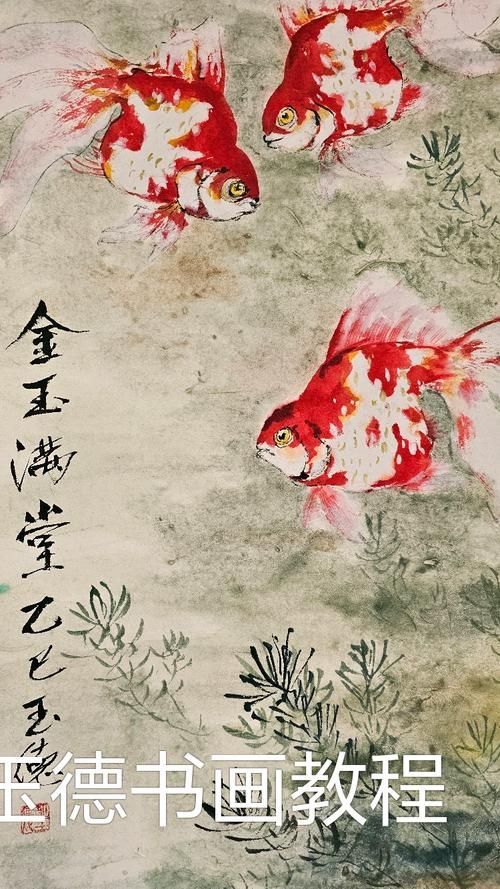 金玉满堂乙巳玉德
玉德书画教程